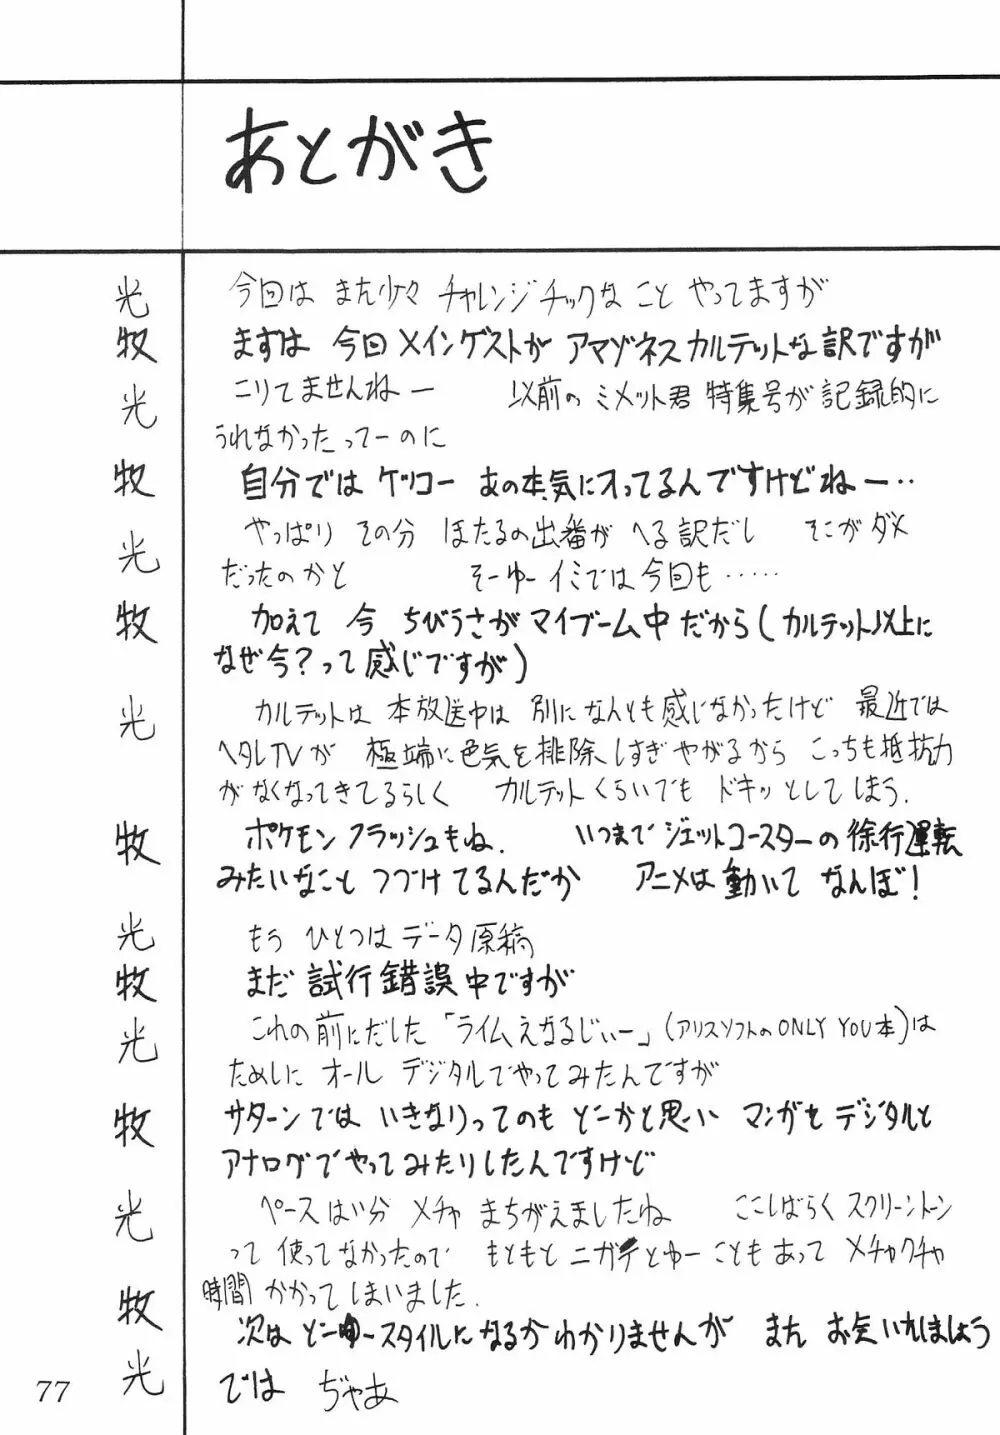 あとがき
光 今回は また少々 チャレンジチックな こと やってますが
牧 まずは 今回 メインゲストが アマゾネスカルテットな訳ですが
光 こりてませんねー 以前の ミメット君 特集号が 記録的に
うれなかったってーのに
牧 自分では ケッコー あの本気に入ってるんですけどねー…
光 やっぱり その分 ほたるの出番が へる訳だし そこがダメ
だったのかと そーゆーイミでは今回も……
牧 加えて 今 ちびうさが マイブーム中だから(カルテット以上に
なぜ今?って感じですが)
光 カルテットは 本放送中は 別になんとも感じなかったけど 最近では
ヘタレTVが 極端に色気を排除しすぎやがるから こっちも抵抗力
がなくなってきてるらしく カルテットくらいでも ドキッとしてしまう.
牧 ポケモン フラッシュもね. いつまで ジェットコースターの徐行運転
みたいなこと つづけてるんだか アニメは動いて なんぼ!
光 もう ひとつは データ原稿
牧 まだ 試行錯誤中ですが
光 これの前にだした 「ライムえなるじぃー」(アリスソフトのONLY YOU本)は
ためしに オール デジタルでやってみたんですが
牧 サターンでは いきなりってのも どーかと思い マンガを デジタルと
アナログで やってみたりしたんですけど
光 ペースはい分 メチャ まちがえましたね ここしばらく スクリーントーン
って 使ってなかったので もともと ニガテとゆーこともあって メチャクチャ
時間 かかってしまいました.
牧 次は どーゆースタイルになるか わかりませんが また お会いしましょう
光 では ぢゃあ
77